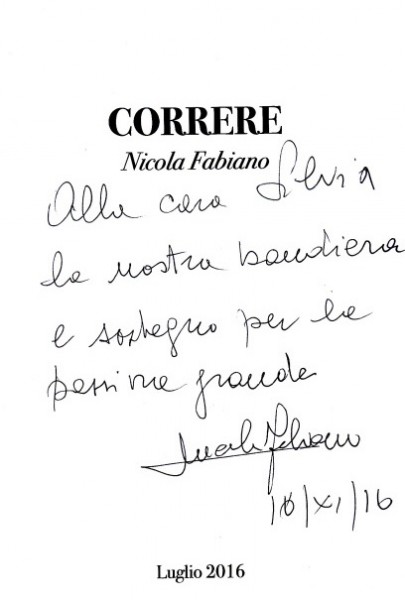 CORRERE
Nicola Fabiano
Alla cara Silvia
la nostra bandiera
e sostegno per la
passione grande
Nicola Fabiano
/XI/16
Luglio 2016